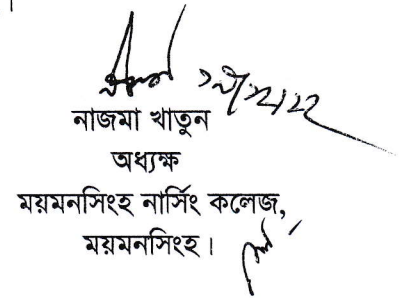 নাজমা খাতুন
অধ্যক্ষ
ময়মনসিংহ নার্সিং কলেজ,
ময়মনসিংহ।